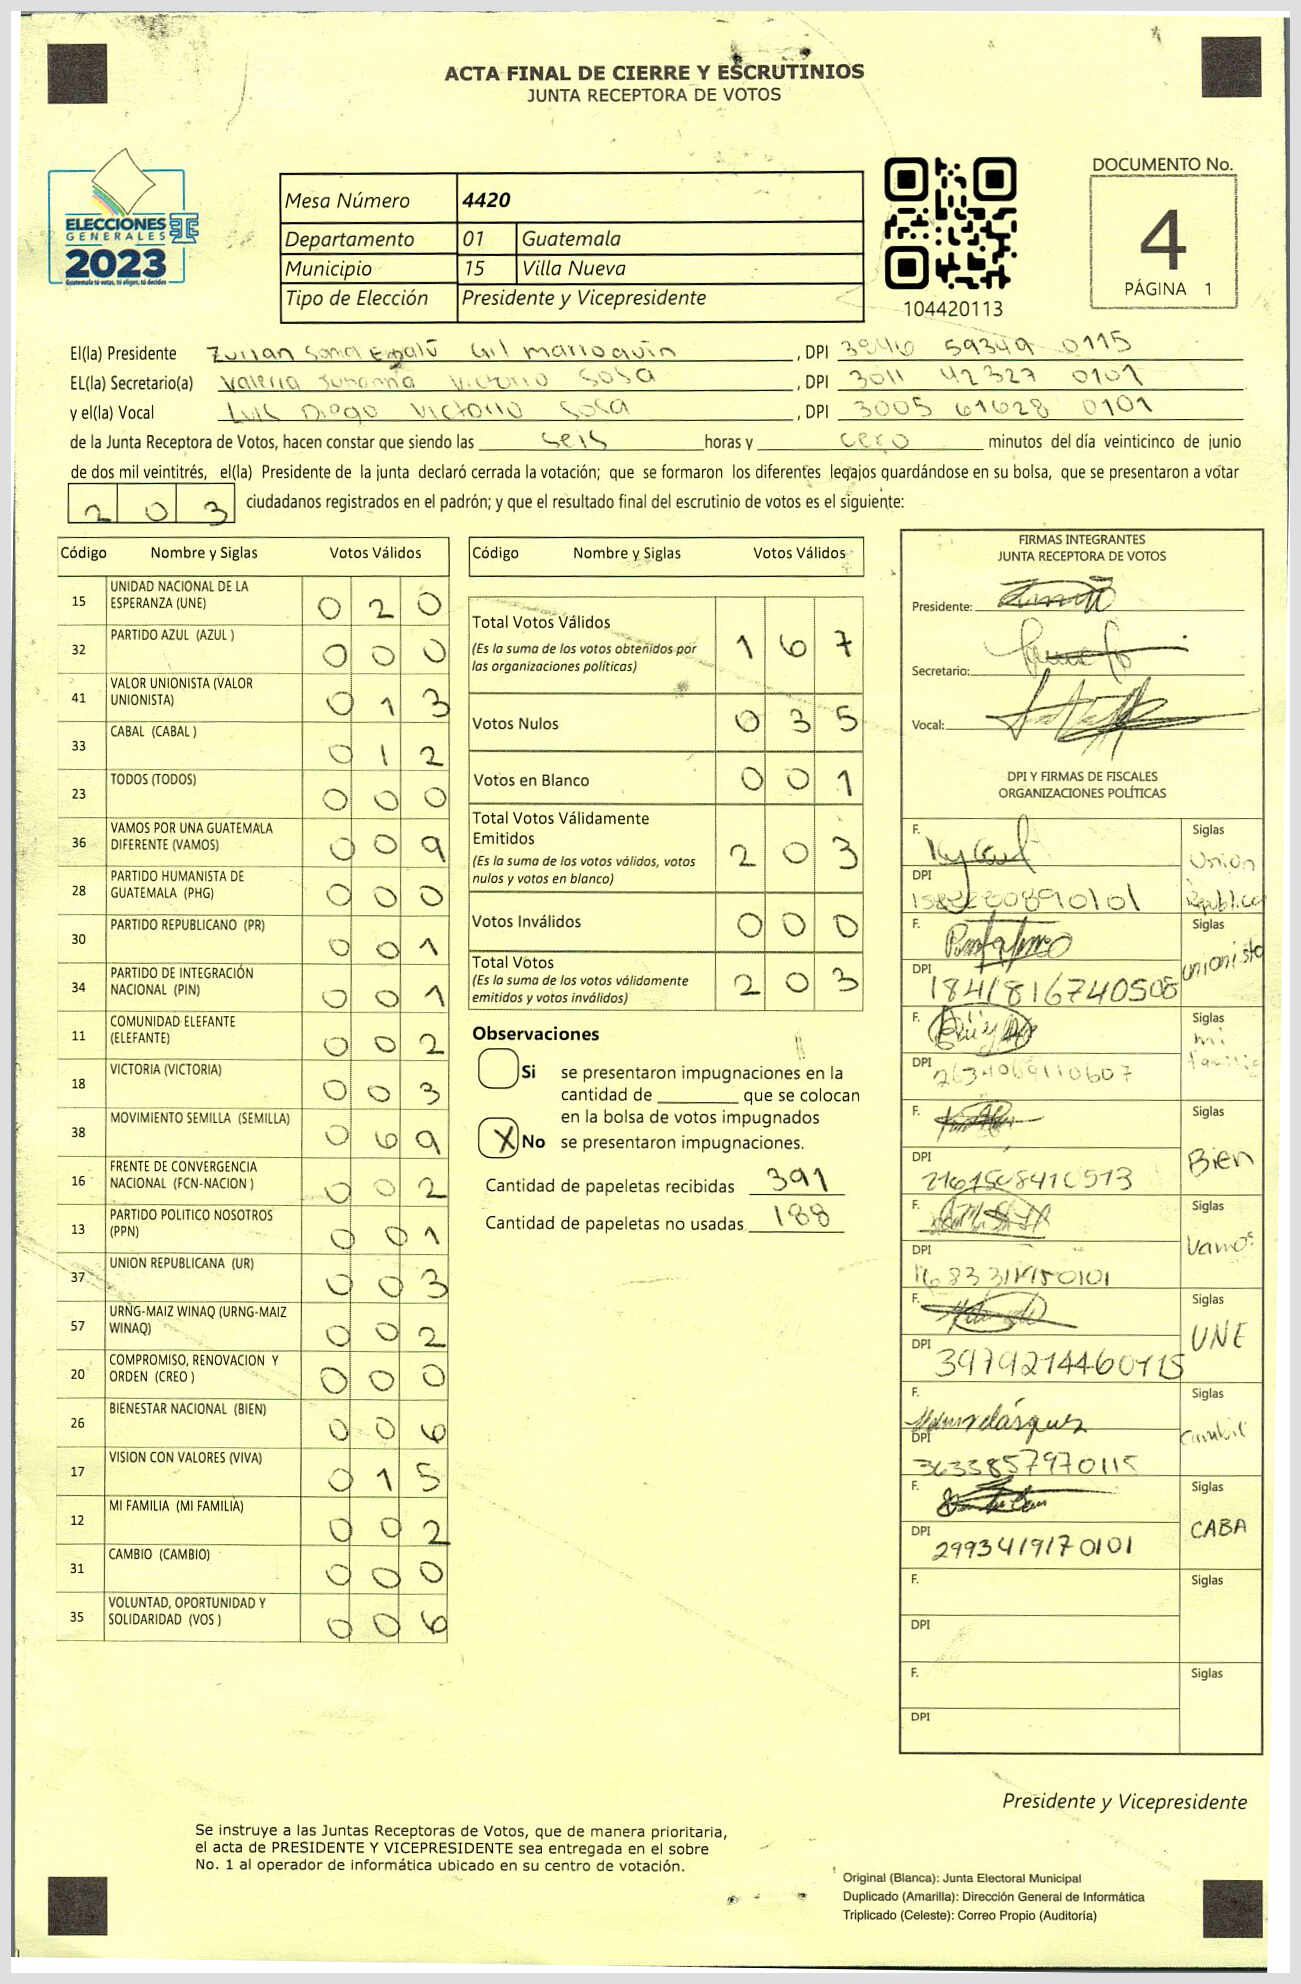 ACTA FINAL DE CIERRE Y ESCRUTINIOS
JUNTA RECEPTORA DE VOTOS
ELECCIONES
GENERALES
2023
Guatemala tú votas, tú eliges, tú decides
Mesa Número 4420
Departamento 01 Guatemala
Municipio 15 Villa Nueva
Tipo de Elección Presidente y Vicepresidente
104420113
DOCUMENTO No.
4
PÁGINA 1
El(la) Presidente Gil Marroquin , DPI 3946 59349 0115
EL(la) Secretario(a) Valeria Victorio Sosa , DPI 3011 42327 0101
y el(la) Vocal Luis Diego Victorio Sosa , DPI 3005 61628 0101
de la Junta Receptora de Votos, hacen constar que siendo las seis horas y cero minutos del día veinticinco de junio
de dos mil veintitrés, el(la) Presidente de la junta declaró cerrada la votación; que se formaron los diferentes legajos guardándose en su bolsa, que se presentaron a votar
203 ciudadanos registrados en el padrón; y que el resultado final del escrutinio de votos es el siguiente:
Código Nombre y Siglas Votos Válidos
15 UNIDAD NACIONAL DE LA ESPERANZA (UNE) 0 2 0
32 PARTIDO AZUL (AZUL ) 0 0 0
41 VALOR UNIONISTA (VALOR UNIONISTA) 0 1 3
33 CABAL (CABAL ) 0 1 2
23 TODOS (TODOS) 0 0 0
36 VAMOS POR UNA GUATEMALA DIFERENTE (VAMOS) 0 0 9
28 PARTIDO HUMANISTA DE GUATEMALA (PHG) 0 0 0
30 PARTIDO REPUBLICANO (PR) 0 0 1
34 PARTIDO DE INTEGRACIÓN NACIONAL (PIN) 0 0 1
11 COMUNIDAD ELEFANTE (ELEFANTE) 0 0 2
18 VICTORIA (VICTORIA) 0 0 3
38 MOVIMIENTO SEMILLA (SEMILLA) 0 6 9
16 FRENTE DE CONVERGENCIA NACIONAL (FCN-NACION ) 0 0 2
13 PARTIDO POLITICO NOSOTROS (PPN) 0 0 1
37 UNION REPUBLICANA (UR) 0 0 3
57 URNG-MAIZ WINAQ (URNG-MAIZ WINAQ) 0 0 2
20 COMPROMISO, RENOVACION Y ORDEN (CREO ) 0 0 0
26 BIENESTAR NACIONAL (BIEN) 0 0 6
17 VISION CON VALORES (VIVA) 0 1 5
12 MI FAMILIA (MI FAMILIA) 0 0 2
31 CAMBIO (CAMBIO) 0 0 0
35 VOLUNTAD, OPORTUNIDAD Y SOLIDARIDAD (VOS ) 0 0 6
Código Nombre y Siglas Votos Válidos
Total Votos Válidos 1 6 7
(Es la suma de los votos obtenidos por
las organizaciones políticas)
Votos Nulos 0 3 5
Votos en Blanco 0 0 1
Total Votos Válidamente
Emitidos 2 0 3
(Es la suma de los votos válidos, votos
nulos y votos en blanco)
Votos Inválidos 0 0 0
Total Votos 2 0 3
(Es la suma de los votos válidamente
emitidos y votos inválidos)
Observaciones
Si se presentaron impugnaciones en la
cantidad de ________ que se colocan
en la bolsa de votos impugnados
X No se presentaron impugnaciones.
Cantidad de papeletas recibidas 391
Cantidad de papeletas no usadas 188
FIRMAS INTEGRANTES
JUNTA RECEPTORA DE VOTOS
Presidente:
Secretario:
Vocal:
DPI Y FIRMAS DE FISCALES
ORGANIZACIONES POLÍTICAS
F. Siglas Union Republica
DPI
F. Siglas unionista
DPI 1841816740508
F. Siglas mi familia
DPI 2634069110607
F. Siglas Bien
DPI
F. Siglas Vamos
DPI
F. Siglas UNE
DPI 3979214460115
F. Siglas
DPI 3633857970115
F. Siglas CABA
DPI 2993419170101
F. Siglas
DPI
F. Siglas
DPI
Presidente y Vicepresidente
Se instruye a las Juntas Receptoras de Votos, que de manera prioritaria,
el acta de PRESIDENTE Y VICEPRESIDENTE sea entregada en el sobre
No. 1 al operador de informática ubicado en su centro de votación.
Original (Blanca): Junta Electoral Municipal
Duplicado (Amarilla): Dirección General de Informática
Triplicado (Celeste): Correo Propio (Auditoría)